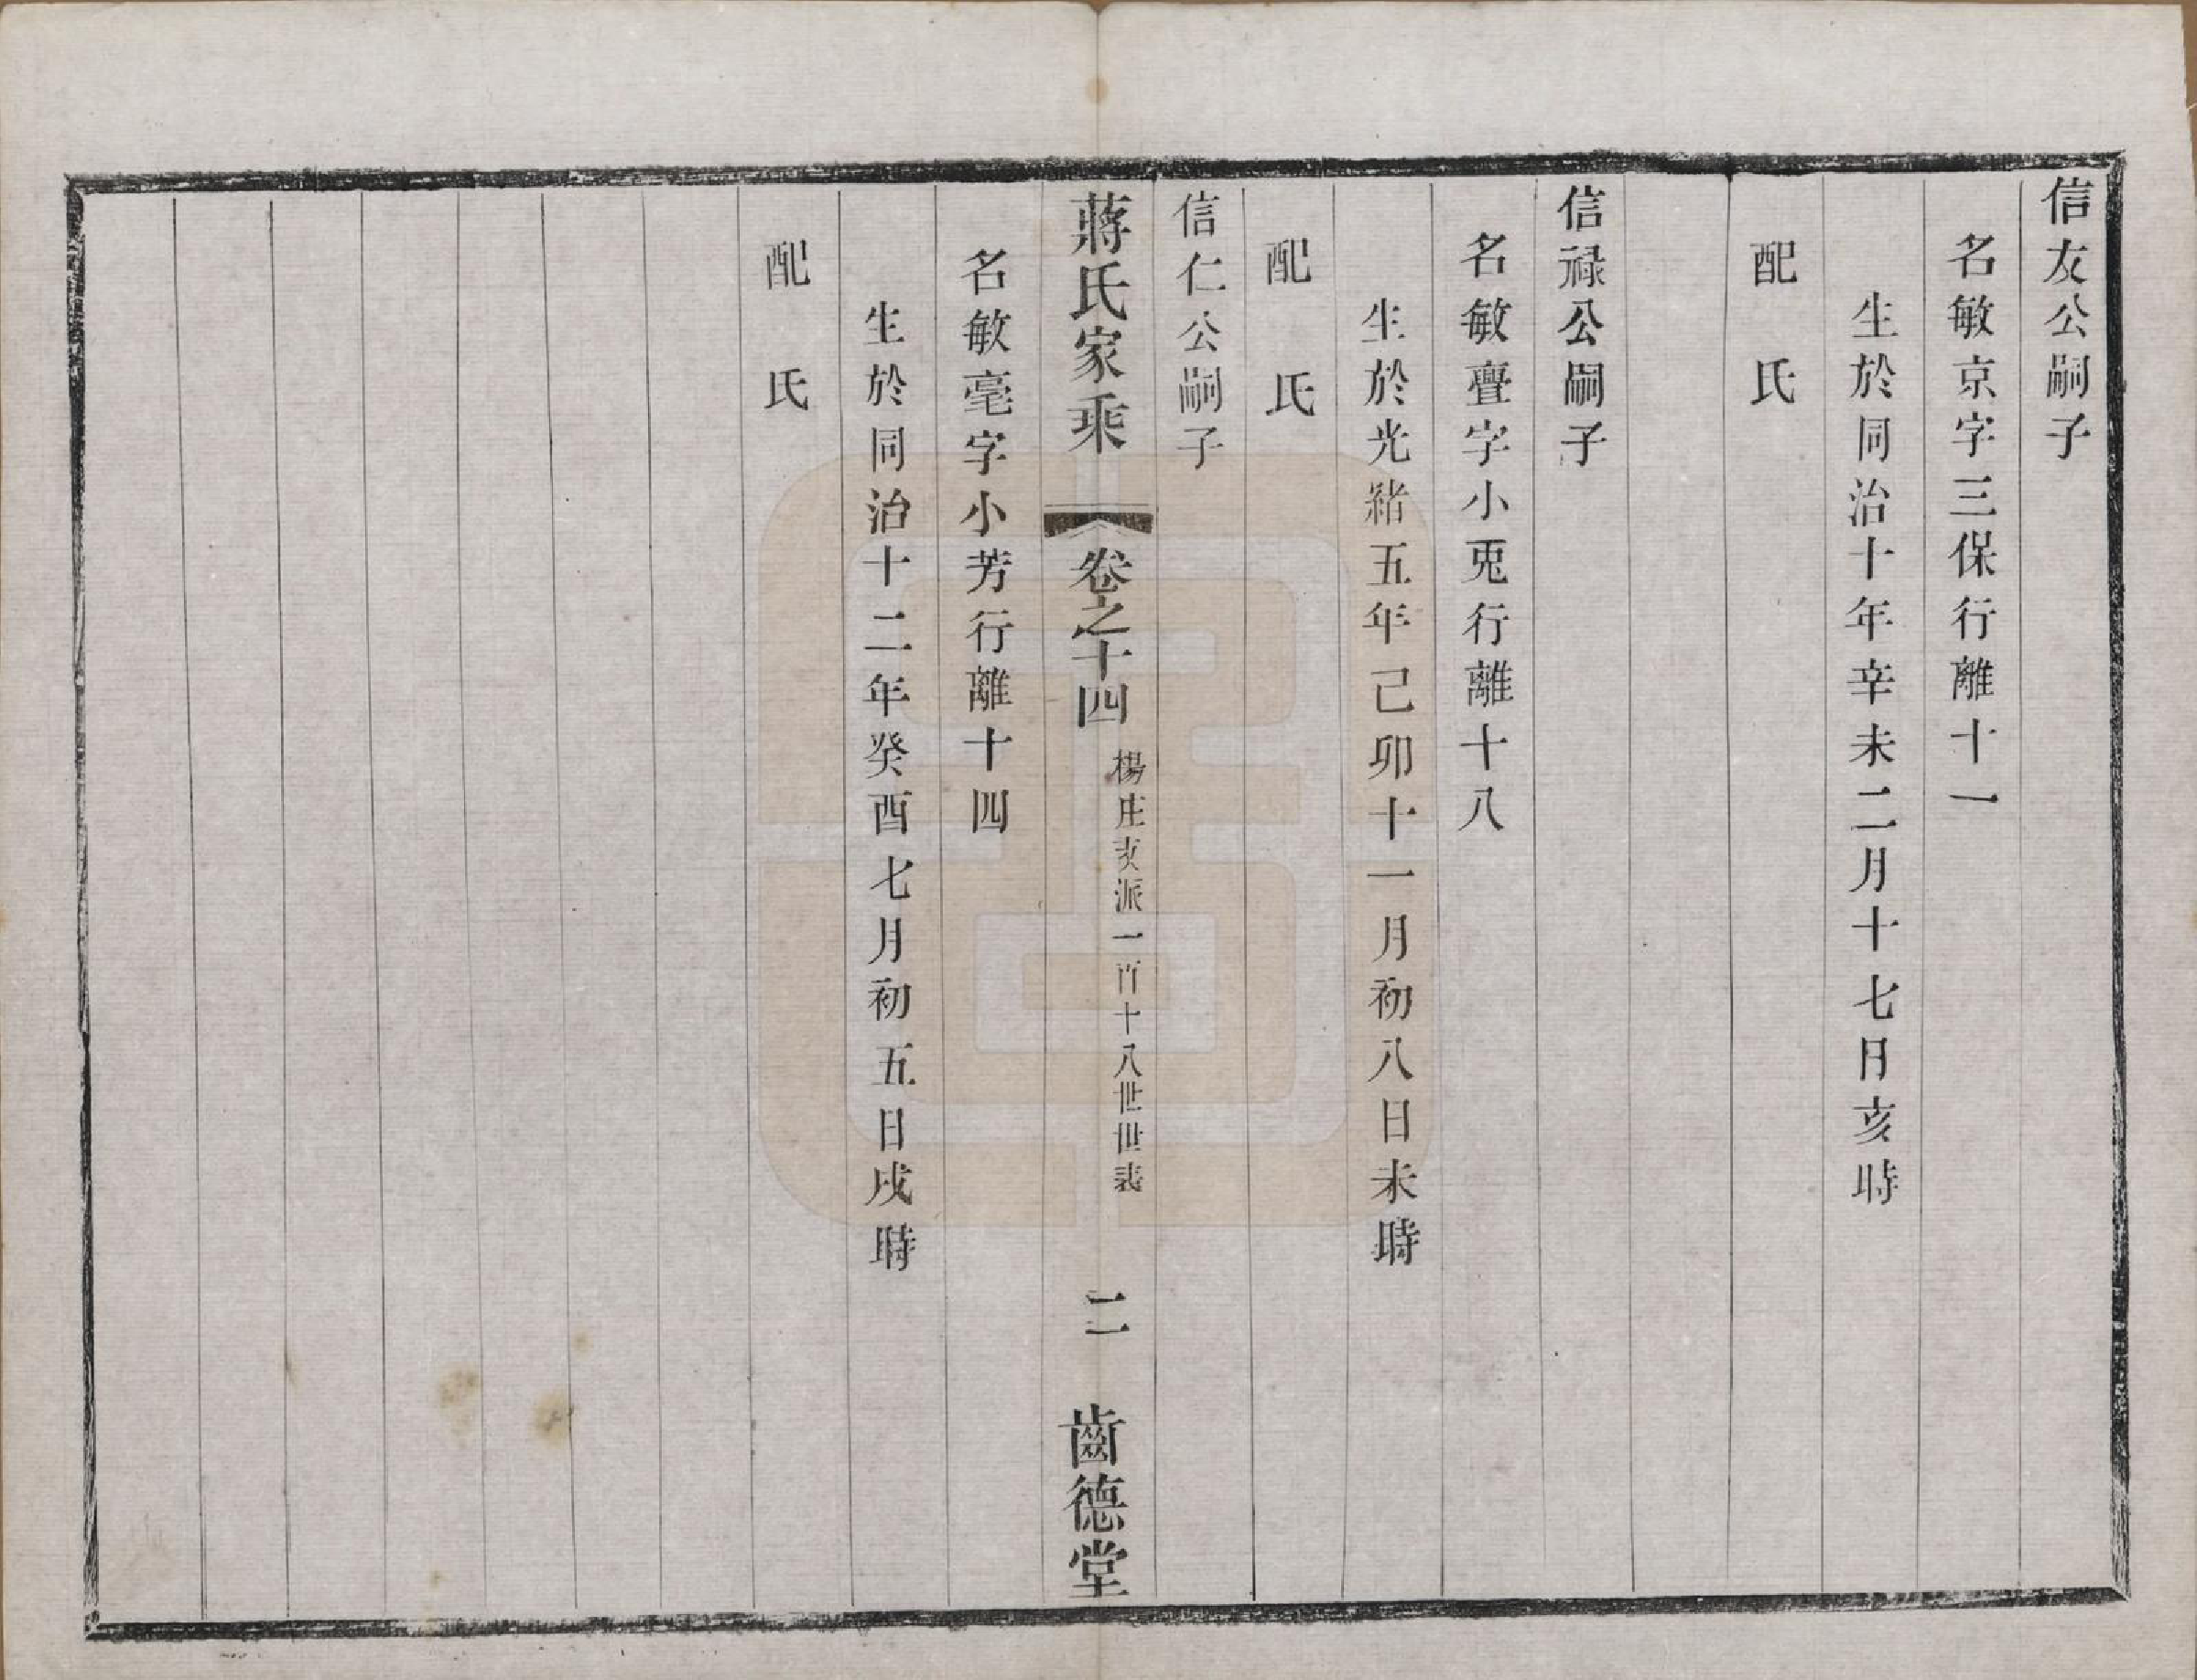 信友公嗣子
名敏京字三保行離十一
生於同治十年辛未二月十七日亥時
配　氏
信禄公嗣子
名敏亹字小兎行離十八
生於光緒五年己卯十一月初八日未時
配　氏
信仁公嗣子
蔣氏家乘　卷之十四　楊庄亥派一百十八世世表　二　齒德堂
名敏亳字小芳行離十四
生於同治十二年癸酉七月初五日戌時
配　氏